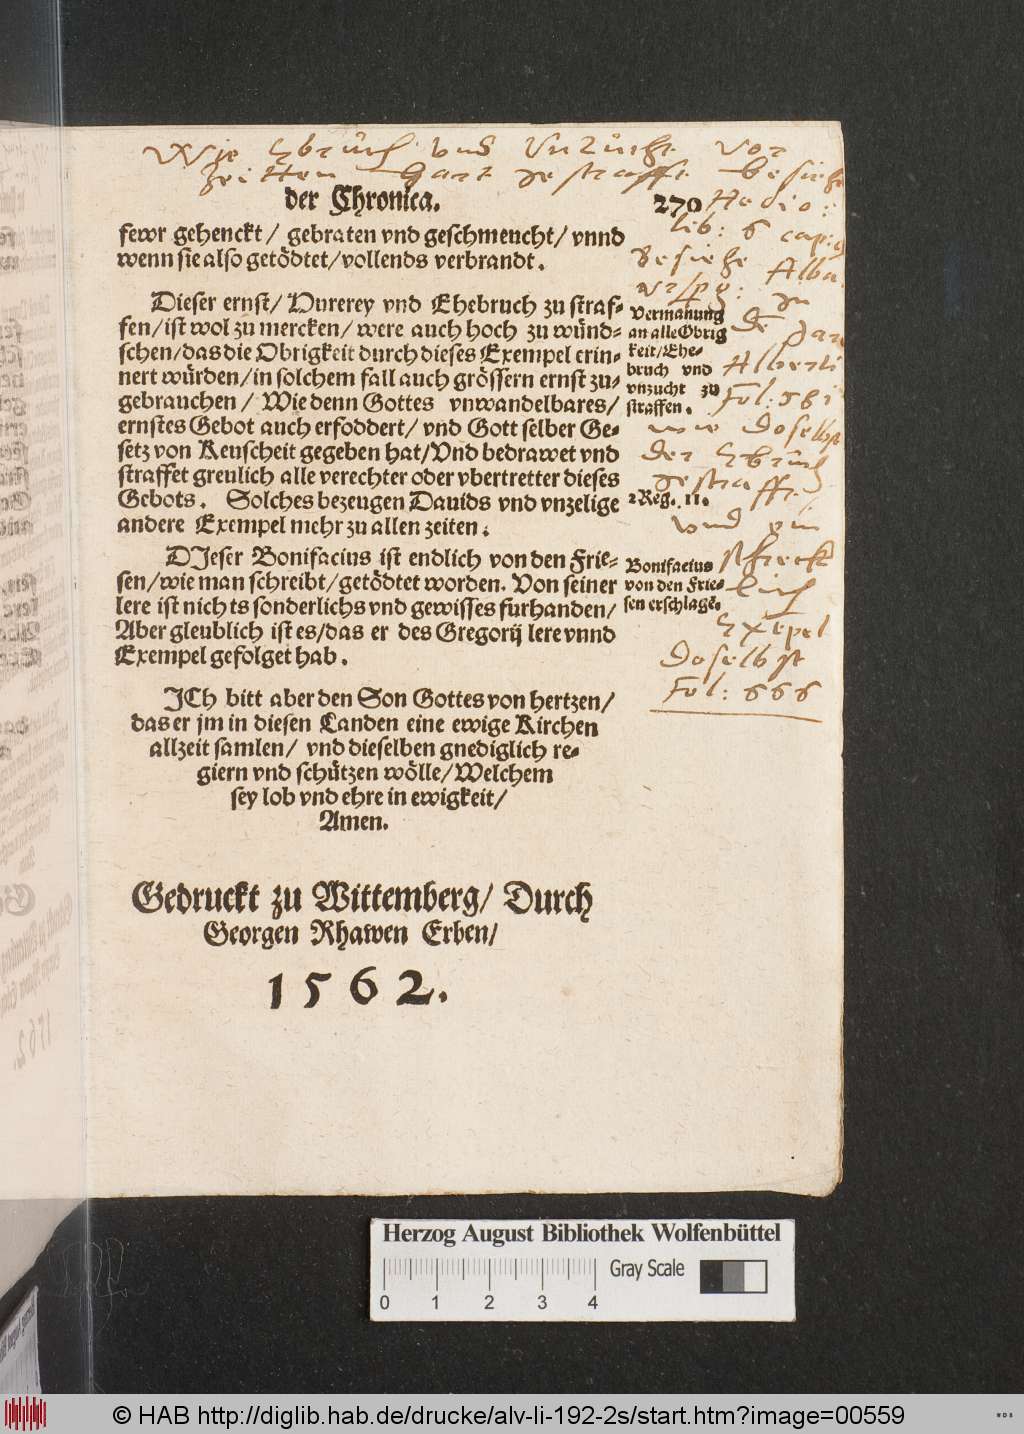 Wie Ehbruch vnd Vnzucht vor
Zeitten Hart gestrafft besiehe
der Chronica. 270
Hedio:
lib: 6 cap: 9
Besiehe Alba.
fewr gehenckt/ gebraten vnd geschmeucht/ vnnd
wenn sie also getödtet/vollends verbrandt.
Dieser ernst/ Hurerey vnd Ehebruch zu straf-
fen/ist wol zu mercken/ were auch hoch zu wünd-
schen/das die Obrigkeit durch dieses Exempel erin-
nert würden/in solchem fall auch grössern ernst zu-
gebrauchen/ Wie denn Gottes vnwandelbares/
ernstes Gebot auch erfoddert/ vnd Gott selber Ge-
setz von Keuscheit gegeben hat/Vnd bedrawet vnd
straffet greulich alle verechter oder vbertretter dieses
Gebots. Solches bezeugen Dauids vnd vnzelige
andere Exempel mehr zu allen zeiten.
Vermanung
an alle Obrig
keit/Ehe-
bruch vnd
vnzucht zu
straffen.
Alberti
Fol: 581
wie doselbst
der Ehbruch
gestrafft
2 Reg. 11.
vnd ein
schreck
lich
Exepel
doselbst
Fol: 666
DIeser Bonifacius ist endlich von den Frie-
sen/wie man schreibt/getödtet worden. Von seiner
lere ist nichts sonderlichs vnd gewisses furhanden/
Aber gleublich ist es/das er des Gregorij lere vnnd
Exempel gefolget hab.
Bonifacius
von den Frie-
sen erschlagē.
ICh bitt aber den Son Gottes von hertzen/
das er jm in diesen Landen eine ewige Kirchen
allzeit samlen/ vnd dieselben gnediglich re-
giern vnd schützen wölle/Welchem
sey lob vnd ehre in ewigkeit/
Amen.
Gedruckt zu Wittemberg/ Durch
Georgen Rhawen Erben/
1562.
Herzog August Bibliothek Wolfenbüttel
Gray Scale
0 1 2 3 4
© HAB http://diglib.hab.de/drucke/alv-li-192-2s/start.htm?image=00559